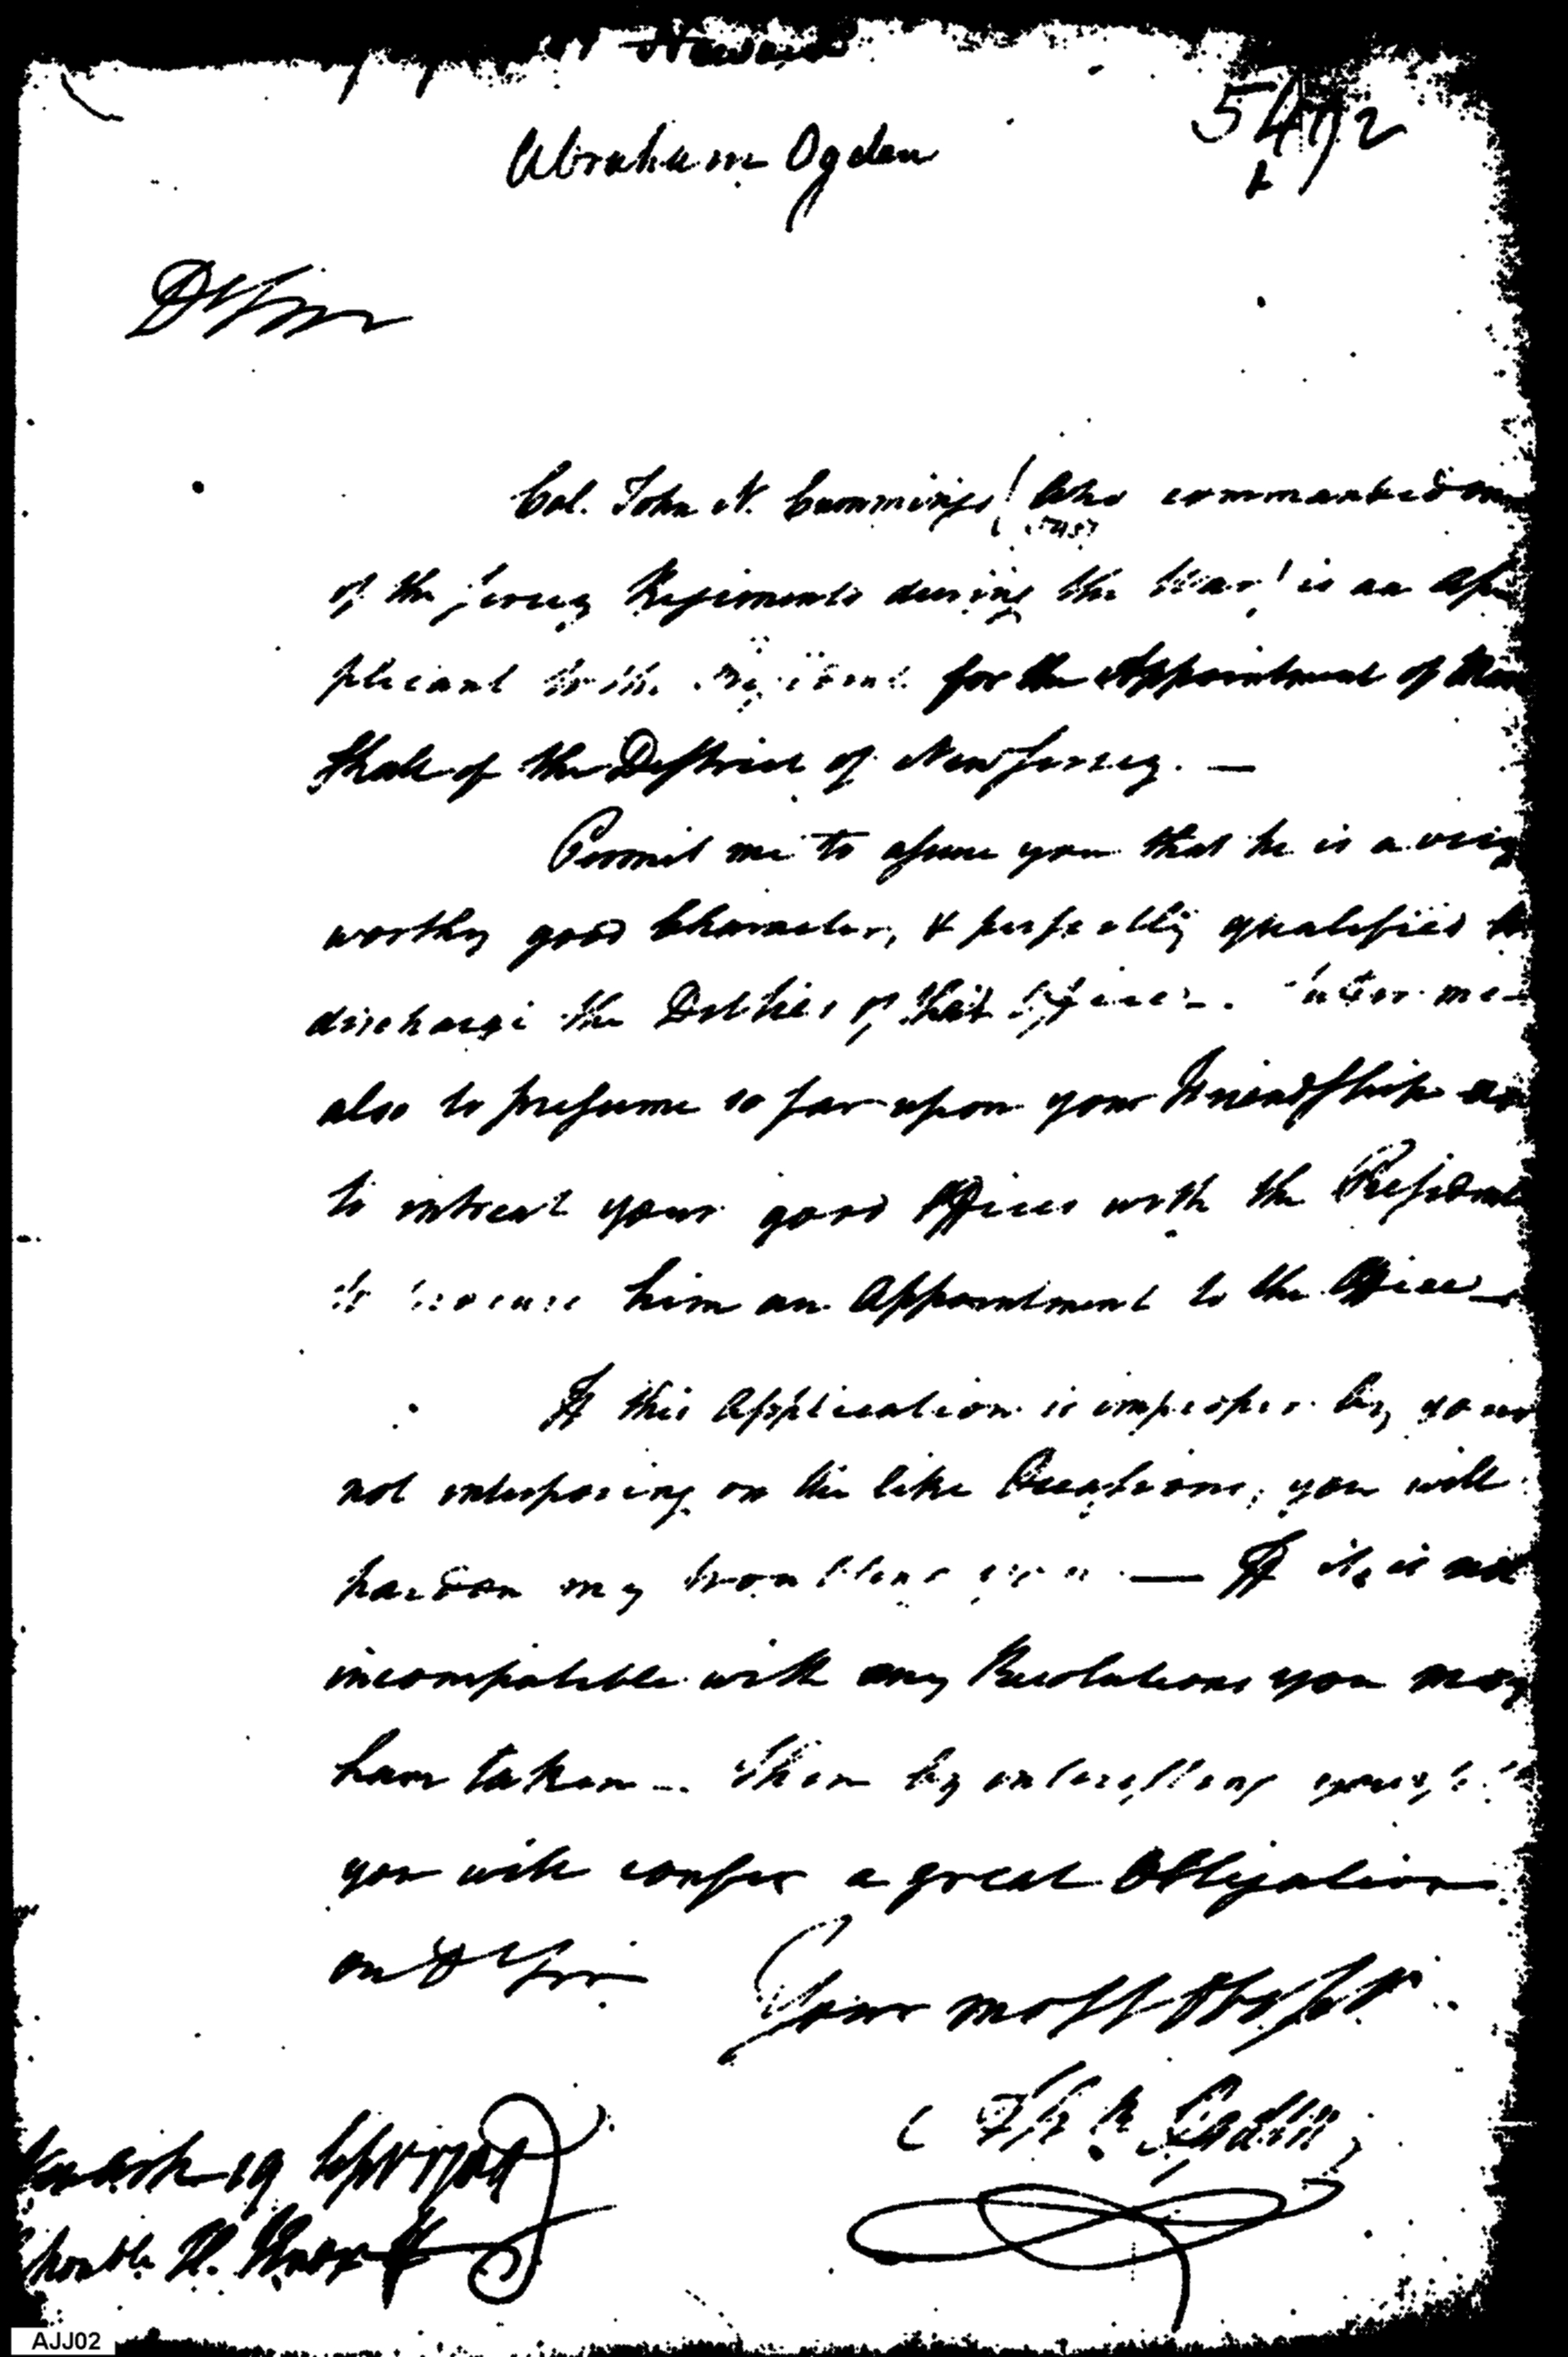 Abraham Ogden
D Sir
Col. John N. Cummings (who commanded one
of the Jersey Regiments during the War) is an ap
plicant to the President for the Appointment of Mar
shall of the District of New Jersey. —
Permit me to assure you that he is a very
worthy good Character, & perfectly qualified to
discharge the Duties of that Office. me
also to presume so far upon your Friendship as
to intreat your good Offices with the President
to procure him an Appointment to the Office
If this Application is improper by your
not interposing on the like Occasions, you will
pardon my troubling you — If it is not
incompatible with any Resolutions you may
have taken — then by interesting yourself
you will confer a great Obligation
on D Sir
Your most
Ogden
Newark 19 Sept
Honble H. Knox
AJJ02